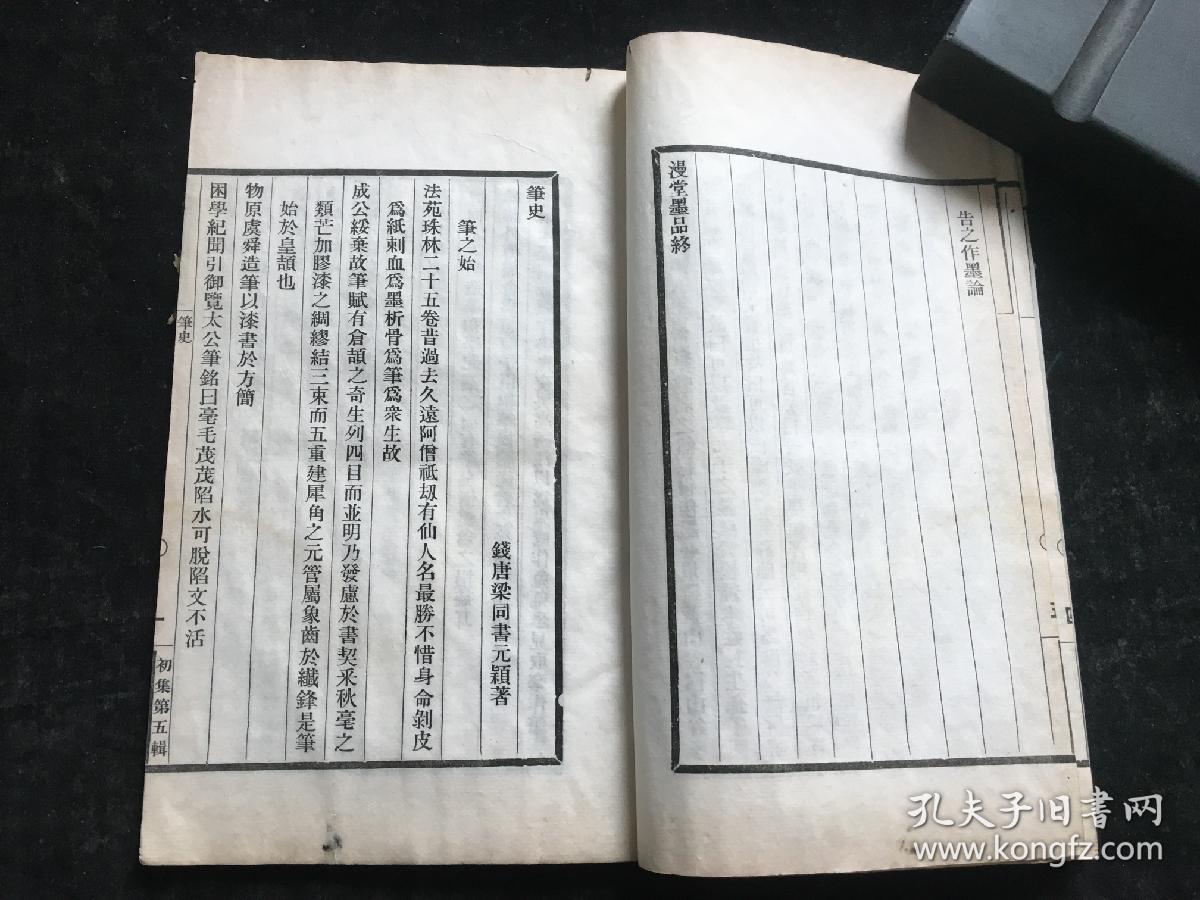 告之作墨論
漫堂墨品終
筆史
錢唐梁同書元穎著
筆之始
法苑珠林二十五卷昔過去久遠阿僧祇刼有仙人名最勝不惜身命剝皮
爲紙刺血爲墨析骨爲筆爲衆生故
成公綏棄故筆賦有倉頡之奇生列四目而並明乃發慮於書契采秋毫之
類芒加膠漆之綢繆結三束而五重建犀角之元管屬象齒於纖鋒是筆
始於皇頡也
物原虞舜造筆以漆書於方簡
困學紀聞引御覽太公筆銘曰毫毛茂茂陷水可脫陷文不活
筆史
一
初集第五輯
孔夫子旧书网
www.kongfz.com